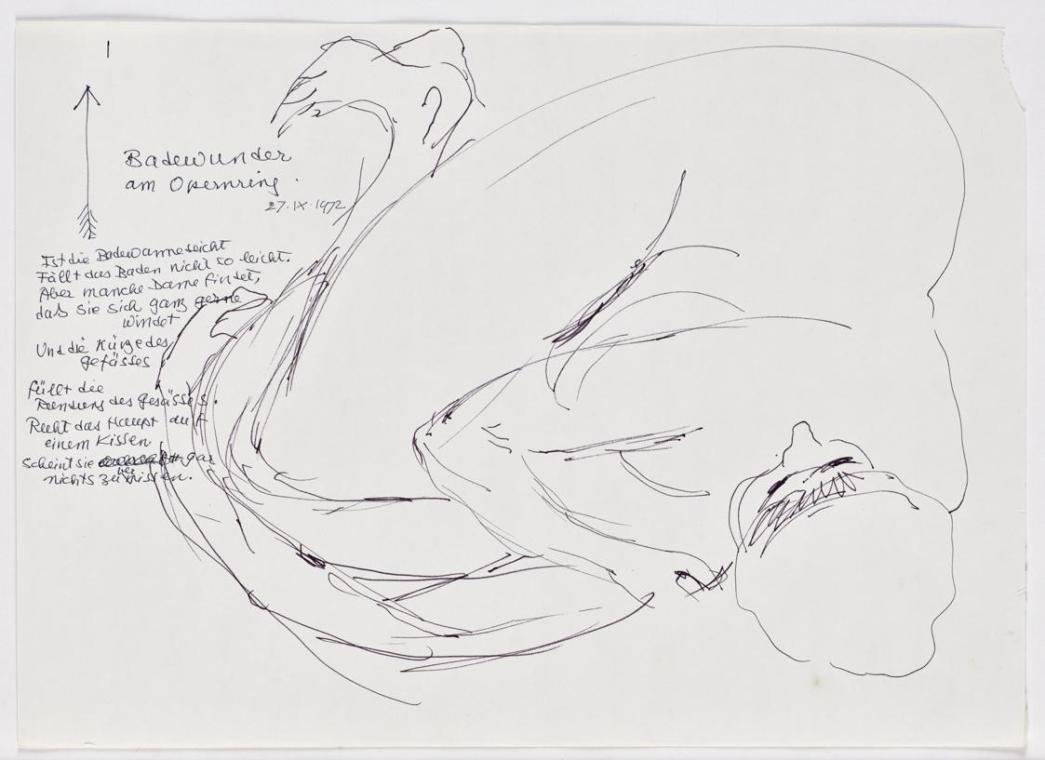 I
Badewunder
am Opernring.
27.IX.1972
Ist die Badewanne seicht
Fällt das Baden nicht so leicht.
Aber manche Dame findet,
daß sie sich ganz gerne
windet
Und die Kürze des
gefässes
füllt die
des gesässes.
Ruht das Haupt auf
einem Kissen
Scheint sie gar
nichts zu wissen.